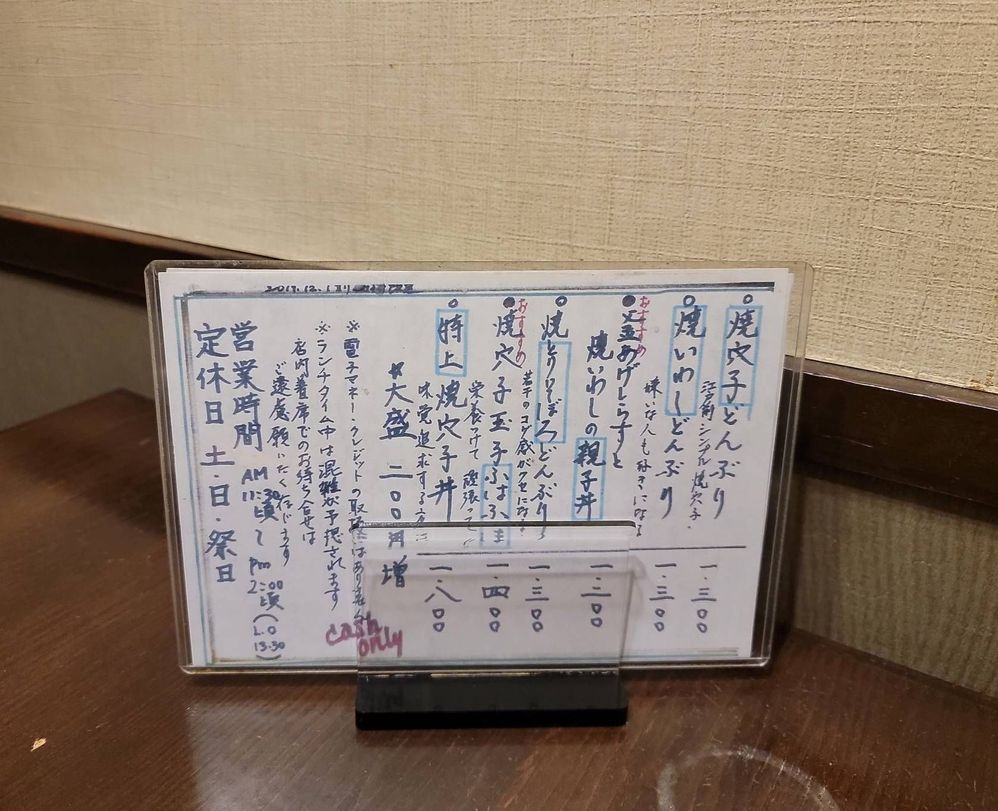 2017.12.1より
焼穴子どんぶり
江戸前シンプル焼穴子
一.三〇〇
焼いわしどんぶり
嫌いな人も好きになる
一.三〇〇
おすすめ
釜あげしらすと
焼いわしの親子丼
一.三〇〇
焼とりそぼろどんぶり
若干のコゲ感がクセになる
一.三〇〇
おすすめ
焼穴子玉子ふわふわ丼
栄養つけて頑張って
一.四〇〇
特上焼穴子丼
味覚追求する方に
一.八〇〇
※大盛 二〇〇円増
※電子マネー・クレジットの取扱はありません
cash only
※ランチタイム中は混雑が予想されます
店内着席でのお待ち合せは
ご遠慮願いたく存じます
営業時間 AM 11:30頃〜 pm 2:00頃 (L.O 13:30)
定休日 土・日・祭日